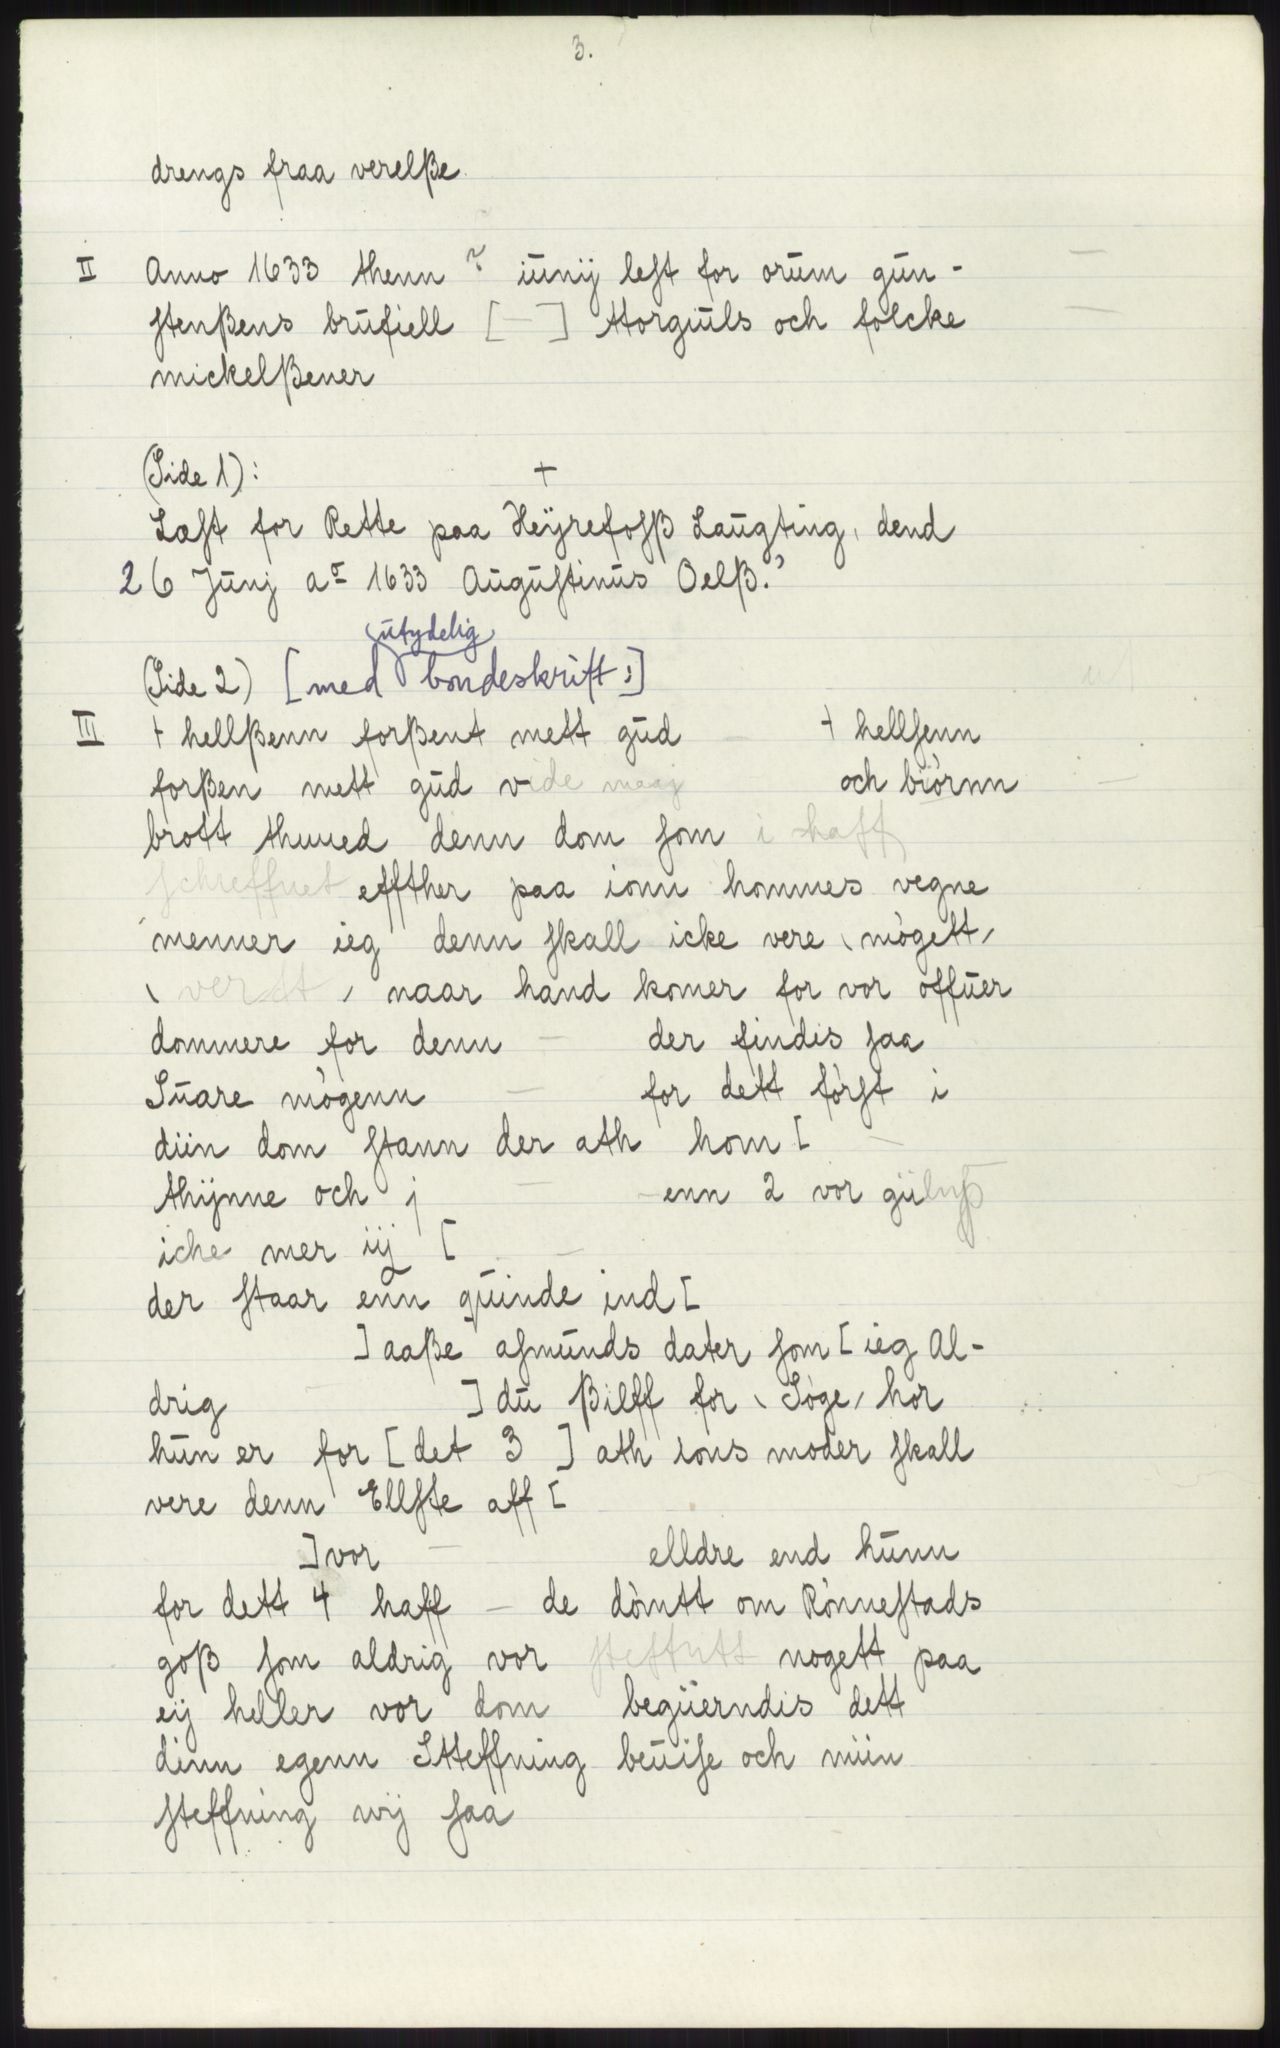 3.
drengs fraa verelße
II Anno 1633 thenn ? iunij lest for orum gun-
stenßens brufiell [ — ] ttorgiuls och folcke
mickelßener
(Side 1): +
Læst for Rette paa Heÿrefosß Laugting, dend
26 Junj aº 1633 Augustinus Oelß.
utydelig
(Side 2) [med bondeskrift:]
III + hellßenn forßent mett gud — + hellsenn
forßen mett gud vide maaj och biörnn —
brott thuued denn dom som i haff
schreffuet effther paa ionn hommes vegne
menner ieg denn skall icke vere \ mögett /
\ / naar hand komer for vor offuer
dommere for denn — der findis saa
Suare mögenn — for dett först i
diin dom stann der ath hom [ —
thÿnne och j — enn 2 vor
iche mer iij [ —
der staar enn quinde ind [
] aaße asmunds dater som [ ieg Al-
drig — ] du ßilff for \ Söge / hor
hun er for [ det 3 ] ath ions moder skall
vere denn Ellste aff [
] vor — elldre end hunn
for dett 4 haff — de dömtt om Rönnestads
goß som aldrig vor steffntt nogett paa
eij heller vor dom beguerndis dett
dinn egenn Stteffning beuise och miin
steffning wij saa